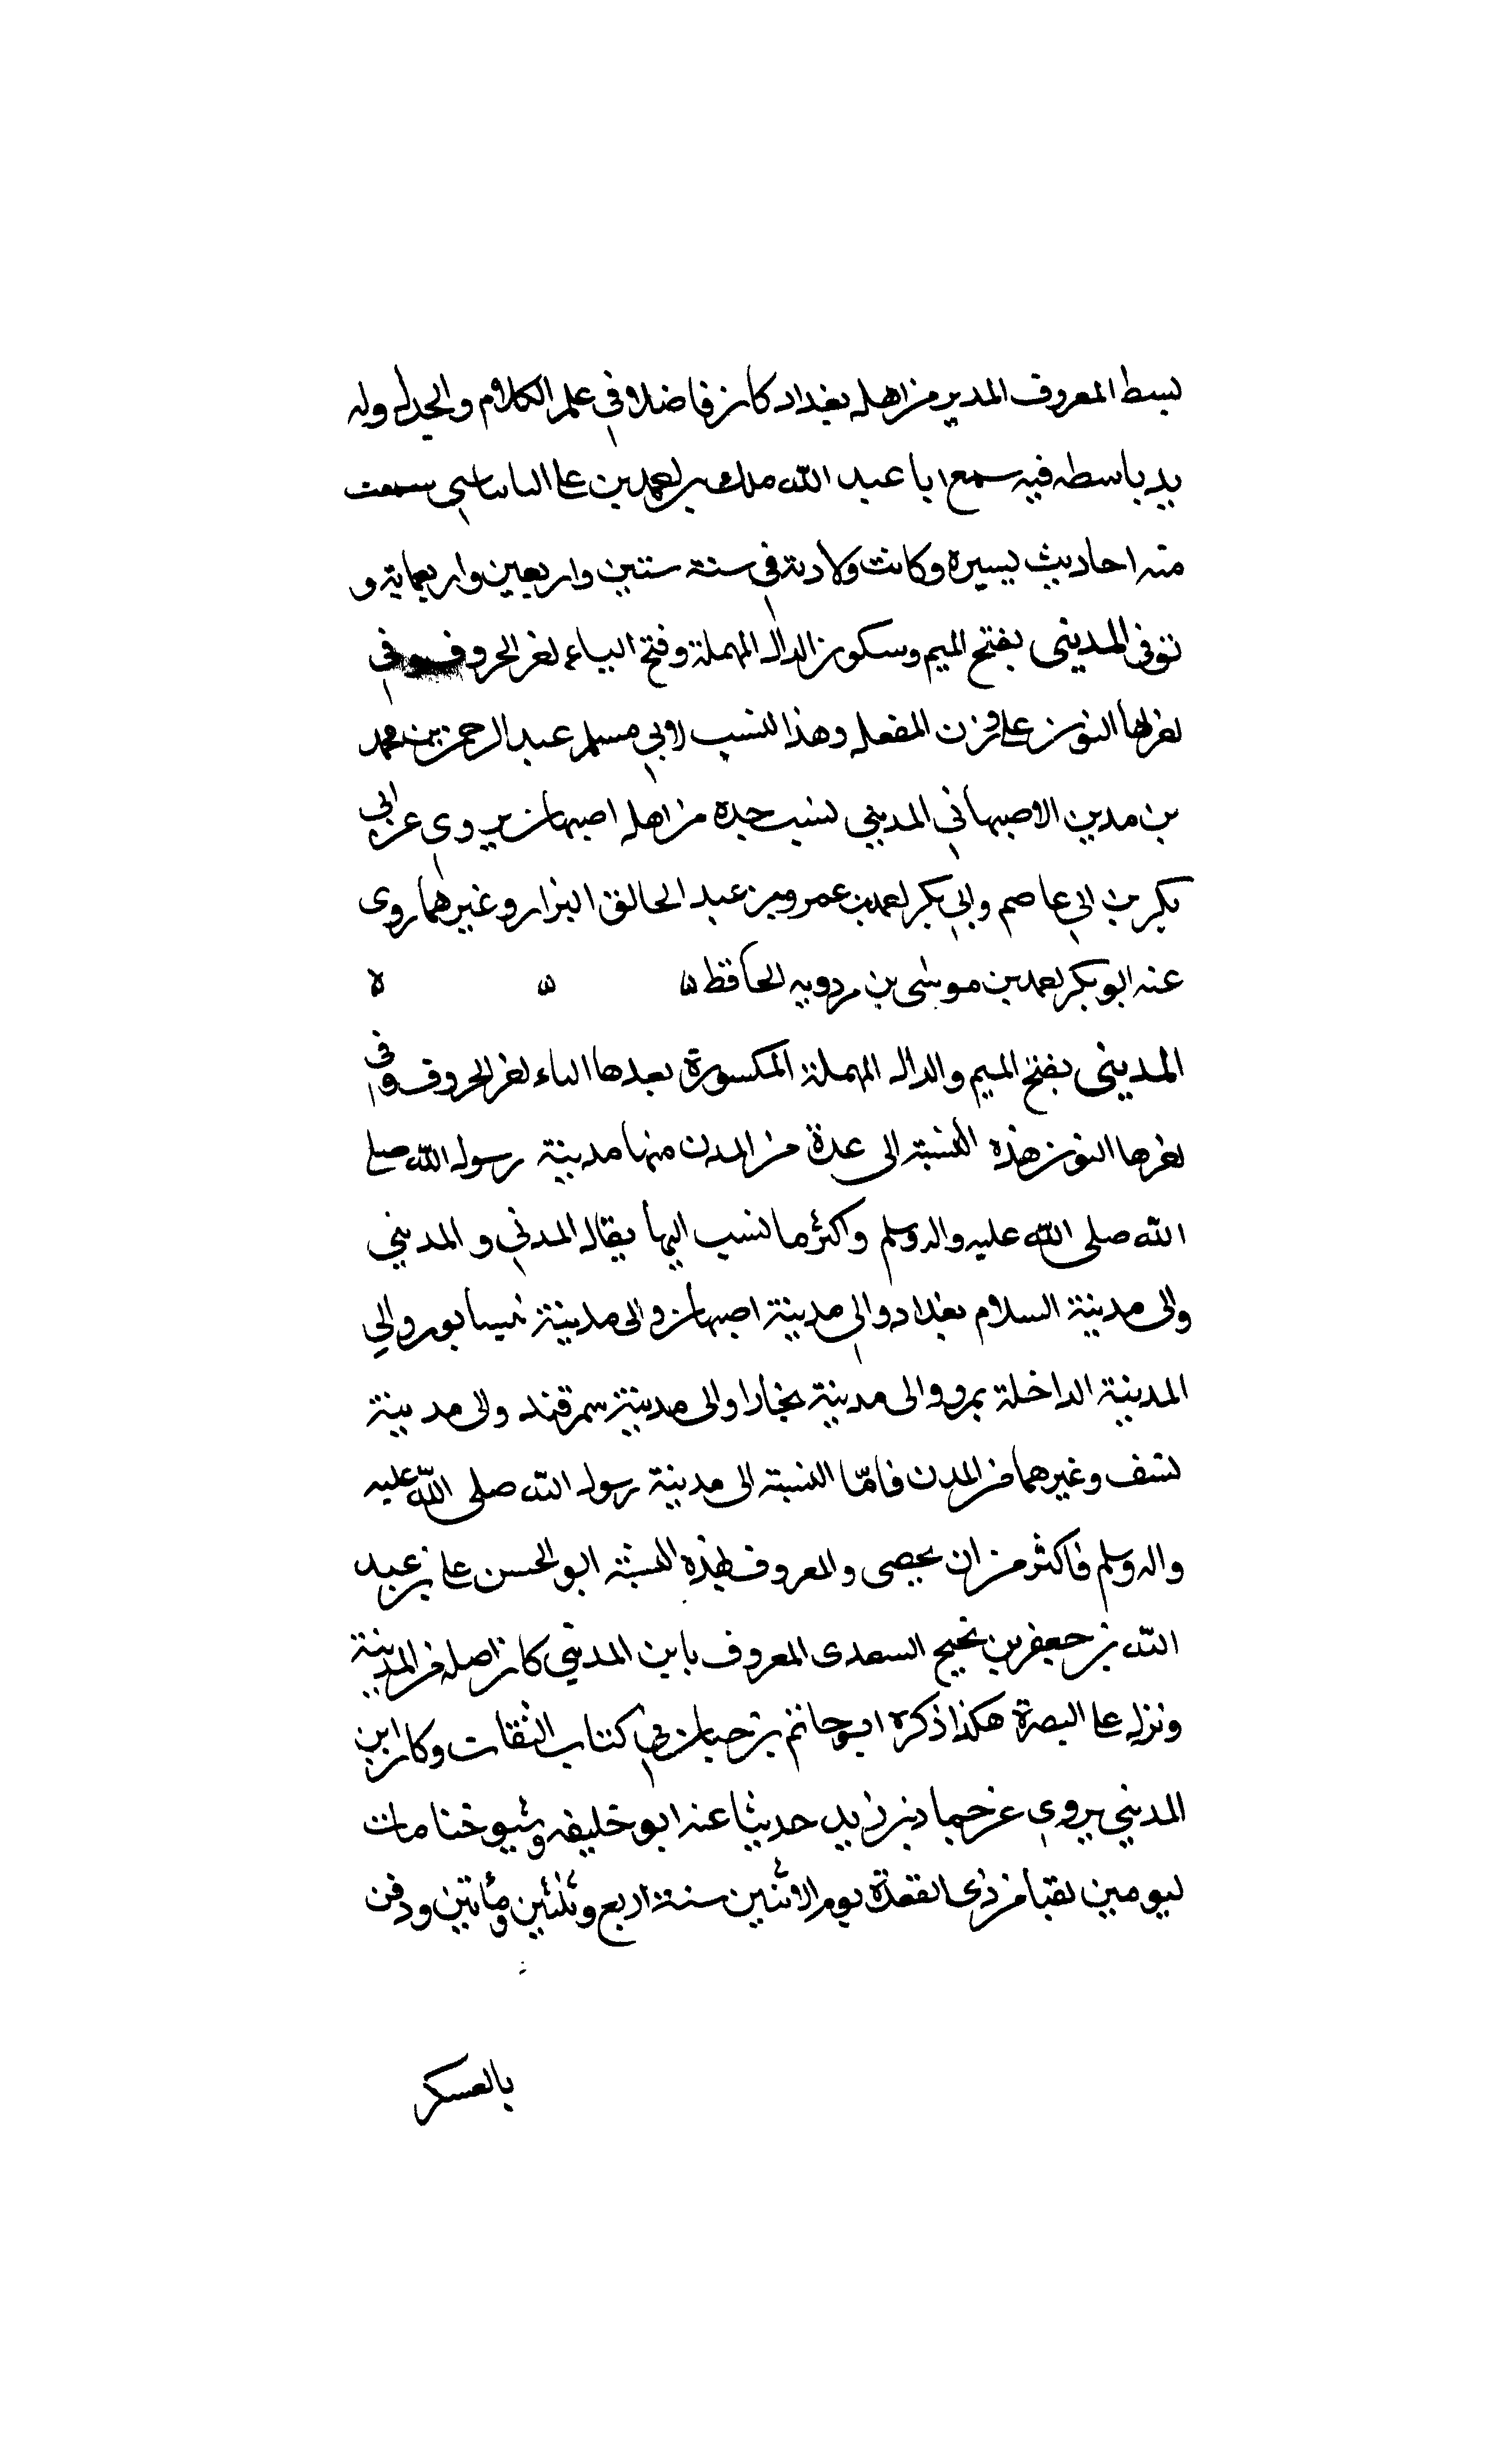 بسط المعروف المدير من اهل بغداد كان فاضلا في علم الكلام والجدل وله
يد باسطه فيه سمع ابا عبد الله ملك بن احمد بن على البانياسي سمعت
منه احاديث يسيره وكانت ولادته في سنة ستين واربعين واربعماية و
توفى المدينى بفتح الميم وسكون الدال المهملة وفتح الياء اخر الحروف وفي
اخرها النون على وزن المفعل وهذا النسب لابي مسلم عبد الرحمن بن محمد
بن مدين الاصبهاني المديني نسب جده من اهل اصبهان يروي عن ابي
بكر بن ابي عاصم وابي بكر احمد بن عمرو بن عبد الخالق البزار وغيرهما روى
عنه ابو بكر احمد بن موسى بن مردويه الحافظ ه ه ه
المدينى بفتح الميم والدال المهملة المكسورة بعدها الياء اخر الحروف وفي
اخرها النون هذه النسبة الى عدة من المدن منها مدينة رسول الله صلى
الله صلى الله عليه واله وسلم واكثر ما نسب اليها يقال المدني و المديني
والى مدينة السلام بغداد والي مدينة اصبهان والى مدينة نيسابور والي
المدينة الداخلة بمرو والى مدينة بخارا والى مدينة سمرقند والى مدينة
نسف وغيرهما من المدن فامّا النسبة الى مدينة رسول الله صلى الله عليه
واله وسلم فاكثر من ان يحصى والمعروف بهذه النسبة ابو الحسن على بن عبد
الله بن جعفر بن نجيح السعدى المعروف بابن المديني كان اصله من المدينة
ونزل على البصرة هكذا ذكره ابو حاتم بن حبان في كتاب الثقات وكان ابن
المديني يروي عن حماد بن زيد حديثا عنه ابو خليفه وشيوخنا مات
ليومين بقيا من ذى القعدة يوم الاثنين سنة اربع وثلثين ومأتين ودفن
بالعسكر